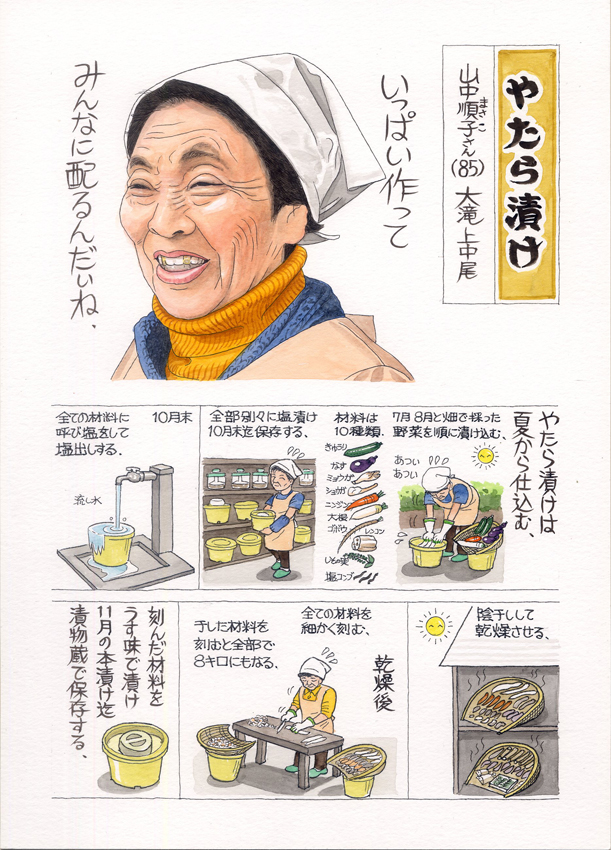 やたら漬け
まさこ
山中順子さん(85) 大滝上中尾
いっぱい作って
みんなに配るんだぃね、
やたら漬けは
夏から仕込む、
7月8月と畑で採った
野菜を順に漬け込む、
あつい
あつい
材料は
10種類、
きゅうり
なす
ミョウガ
ショウガ
ニンジン
大根
ゴボウ
レンコン
しその実
塩コンブ
全部別々に塩漬け
10月末迄保存する、
10月末
全ての材料に
呼び塩をして
塩出しする、
流し水
陰干しして
乾燥させる、
乾燥後
全ての材料を
細かく刻む、
干した材料を
刻むと全部で
8キロにもなる、
刻んだ材料を
うす味で漬け
11月の本漬け迄
漬物蔵で保存する、